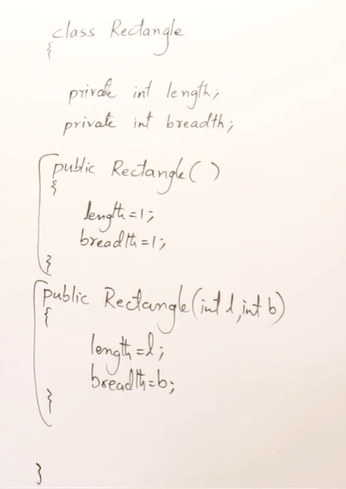 class Rectangle
{
private int length;
private int breadth;
public Rectangle( )
{
length=1;
breadth=1;
}
public Rectangle(int l,int b)
{
length=l;
breadth=b;
}
}